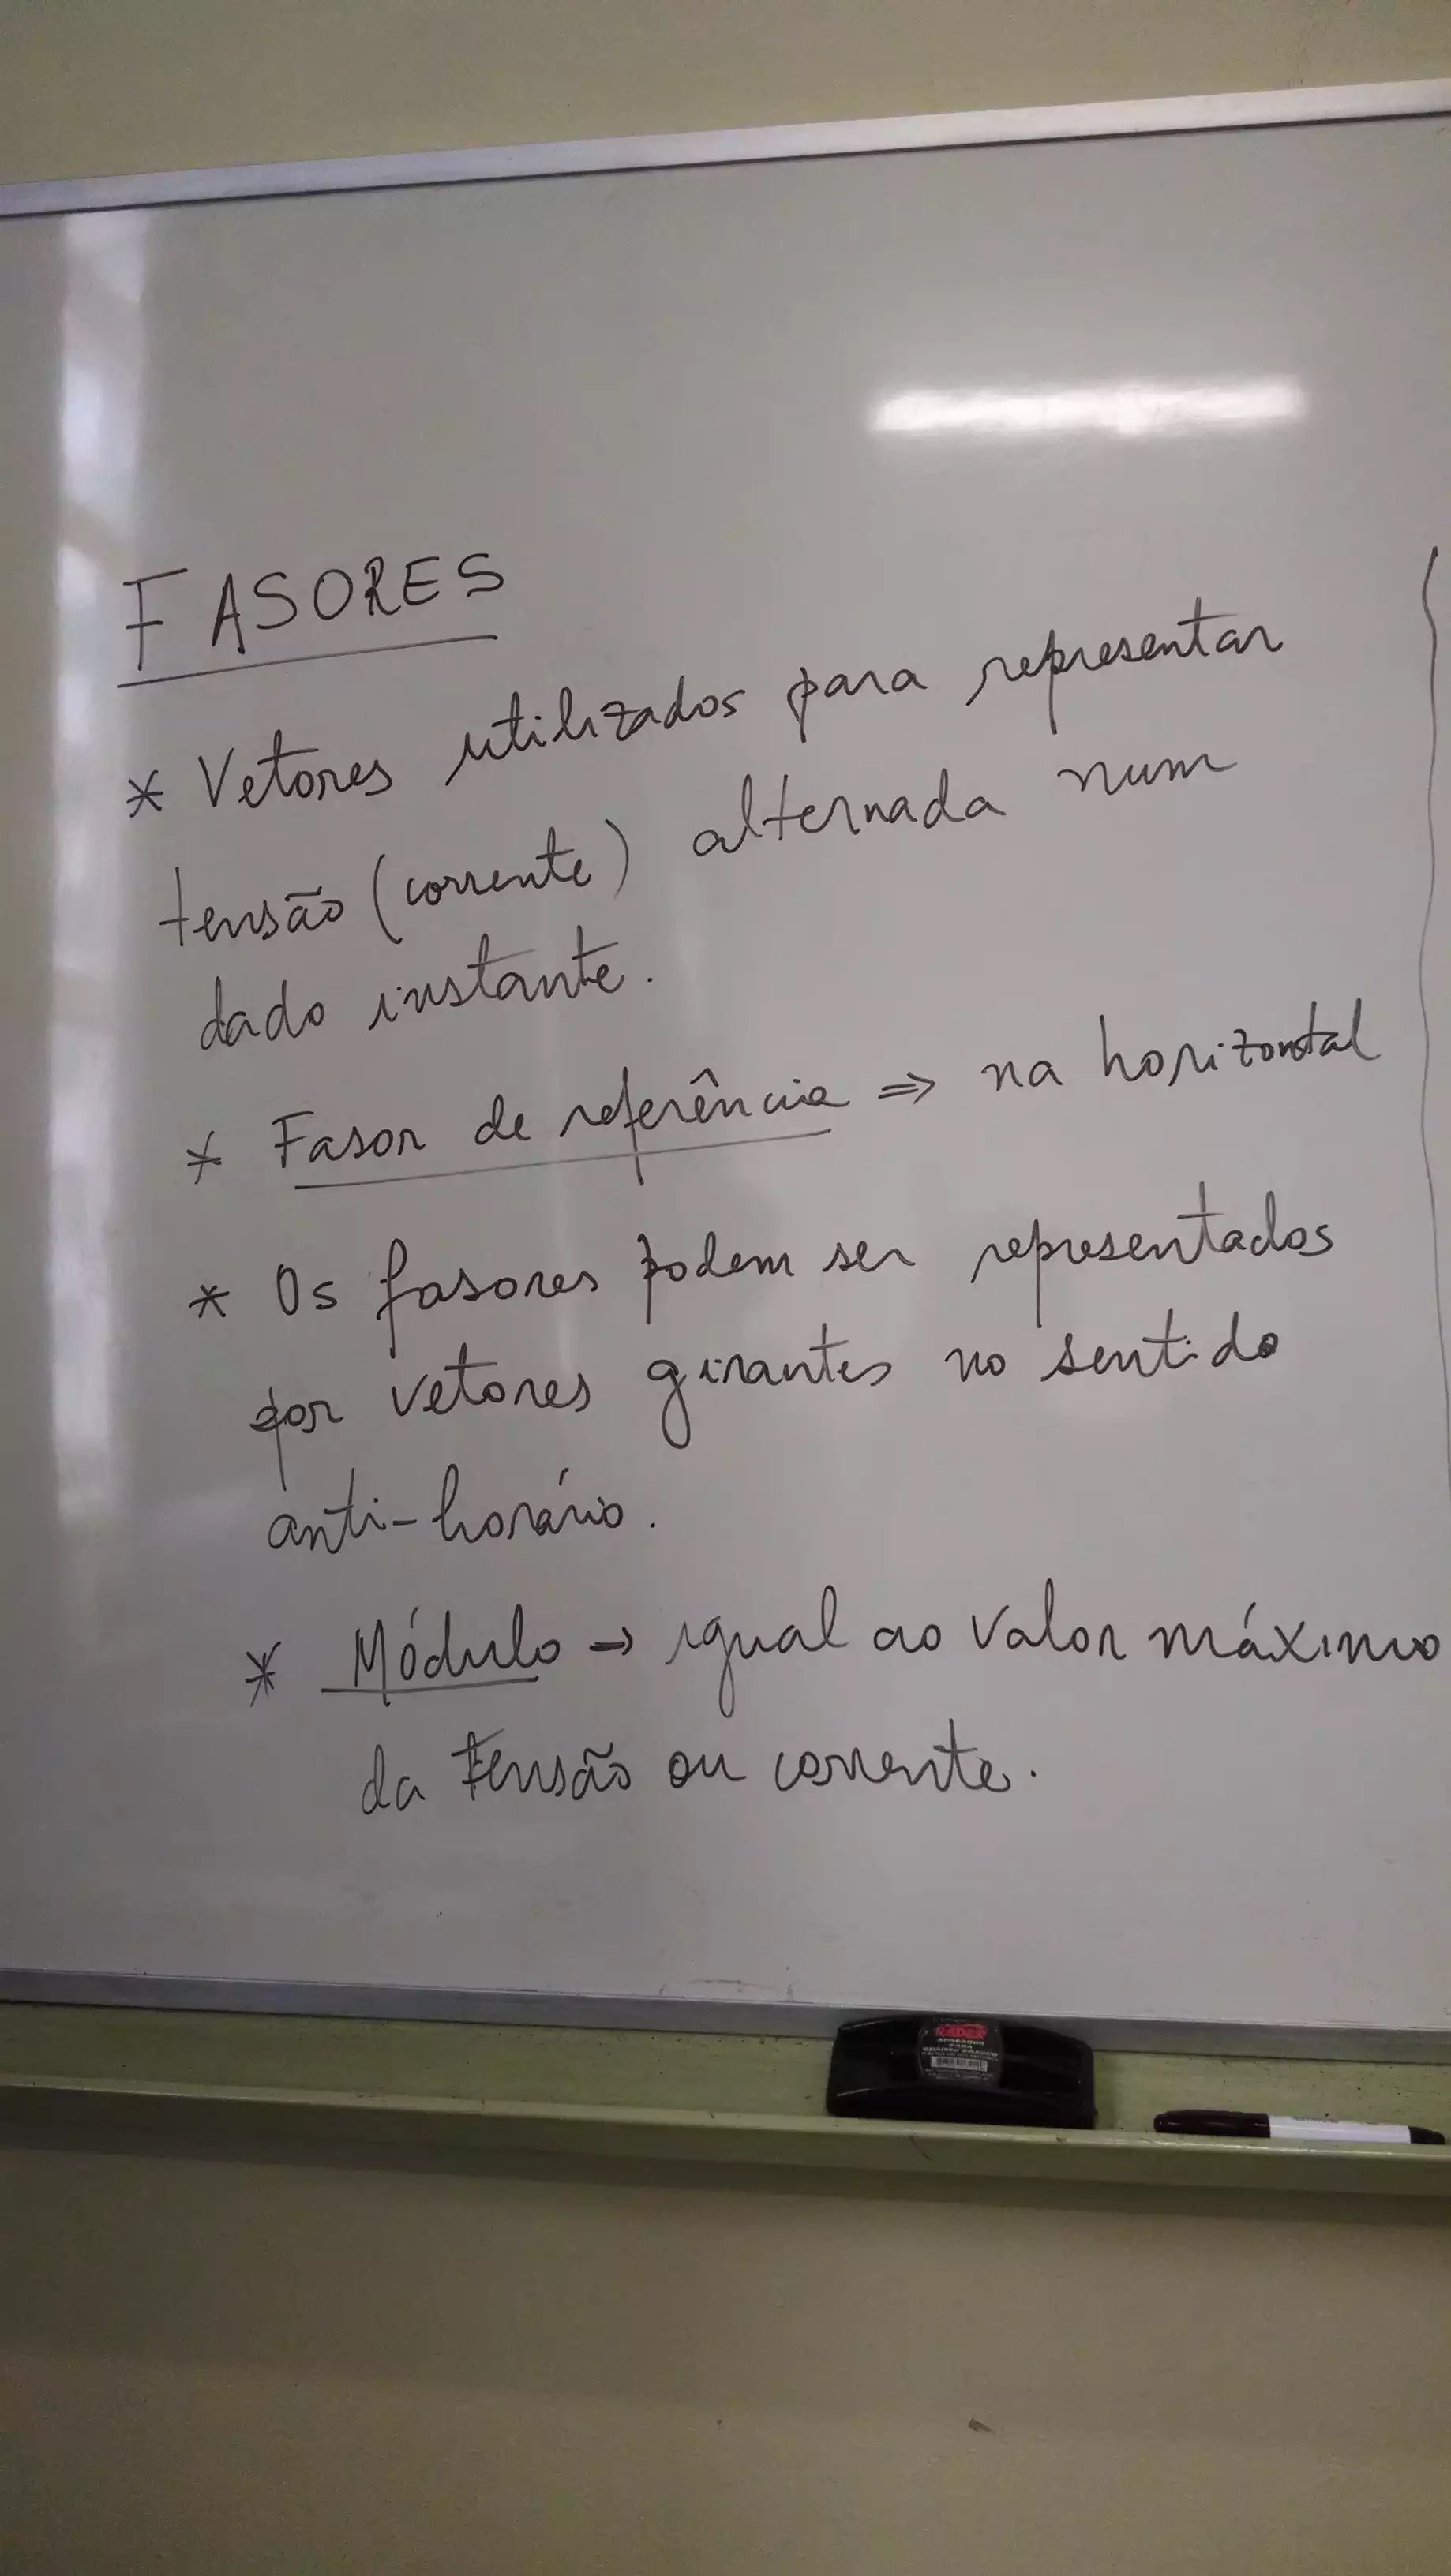 FASORES
* Vetores utilizados para representar
tensão (corrente) alternada num
dado instante.
* Fasor de referência ⇒ na horizontal
* Os fasores podem ser representados
por vetores girantes no sentido
anti-horário.
* Módulo → igual ao valor máximo
da tensão ou corrente.
RADEX
APAGADOR
PARA
QUADRO BRANCO